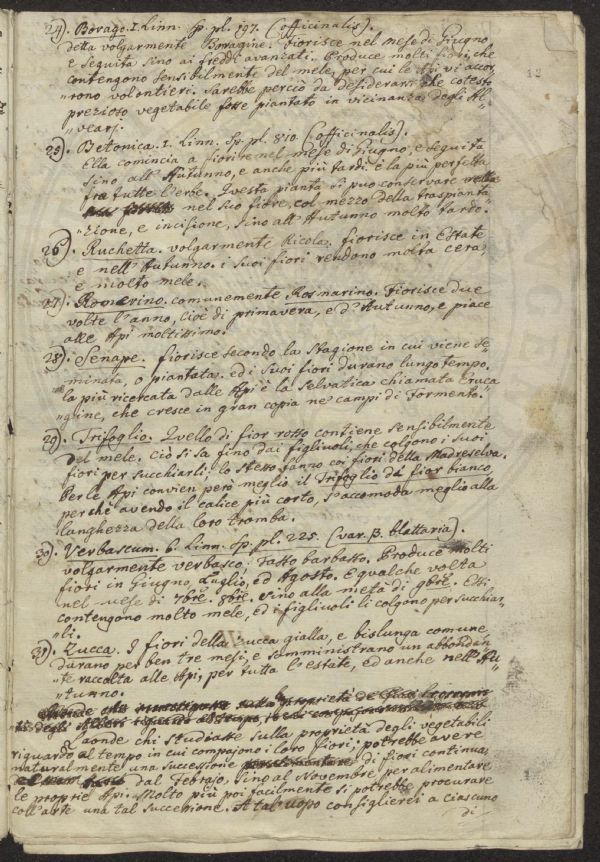 24). Borago. I. Linn. Sp. pl. 197. (officinalis).
detta volgarmente Boragine. fiorisce nel mese di Giugno
e seguita sino ai freddi avanzati. Produce molti fiori, che
contengono sensibilmente del mele, per cui le Api vi accor„
„rono volontieri. Sarebbe perciò da desiderarsi che cotesto
prezioso vegetabile fosse piantato in vicinanza degli Al„
„vearj.
25). Betonica. I. Linn. Sp. pl. 810. (officinalis).
Ella comincia a fiorire nel mese di Giugno, e seguita
sino all'Autunno, e anche più tardi. è la più perfetta
fra tutte l'erbe. Questa pianta si può conservare nella
nel suo fiore, col mezzo della traspianta„
„zione, e incisione, sino all'Autunno molto tardo.
26). Ruchetta. volgarmente Ricola. fiorisce in Estate
e nell'Autunno. i suoi fiori rendono molta cera,
e molto mele.
27). Romerino. comunemente Rosmarino. Fiorisce due
volte l'anno, cioè di primavera, e d'Autunno, e piace
alle Api moltissimo.
28). Senape. fiorisce secondo la Stagione in cui viene se„
„minata, o piantata. ed i suoi fiori durano lungo tempo.
la più ricercata dalle Api è la Selvatica chiamata Eruca
„gine, che cresce in gran copia ne' campi di formento.
29). Trifoglio. Quello di fior rosso contiene sensibilmente
del mele. Ciò si sa fino dai figliuoli, che colgono i suoi
fiori per succhiarli; lo stesso fanno coi fiori della Madreselva.
Per le Api convien però meglio il Trifoglio da fior bianco,
perchè avendo il calice più corto, s'accomoda meglio alla
lunghezza della loro tromba.
30). Verbascum. 6. Linn. Sp. pl. 225. (var. β. blattaria).
volgarmente verbasco, Tasso barbasso. Produce molti
fiori in Giugno, Luglio, ed Agosto. E qualche volta
nel mese di 7bre. 8bre. sino alla metà di 9bre. Essi
contengono molto mele, ed i figliuoli li colgono per succhiar„
„li.
31). Zucca. I fiori della zucca gialla, e bislunga comune
durano per ben tre mesi, e somministrano un abbondan„
„te raccolta alle Api, per tutta l'estate, ed anche nell'Au„
„tunno.
Laonde chi studiasse sulla proprietà degli vegetabili
riguardo al tempo in cui compajono i loro fiori, potrebbe avere
naturalmente una successione di fiori continua,
dal Febrajo, sino al Novembre per alimentare
le proprie Api. Molto più poi facilmente si potrebbe procurare
coll'arte una tal successione. A tal uopo consiglierei a ciascuno
di